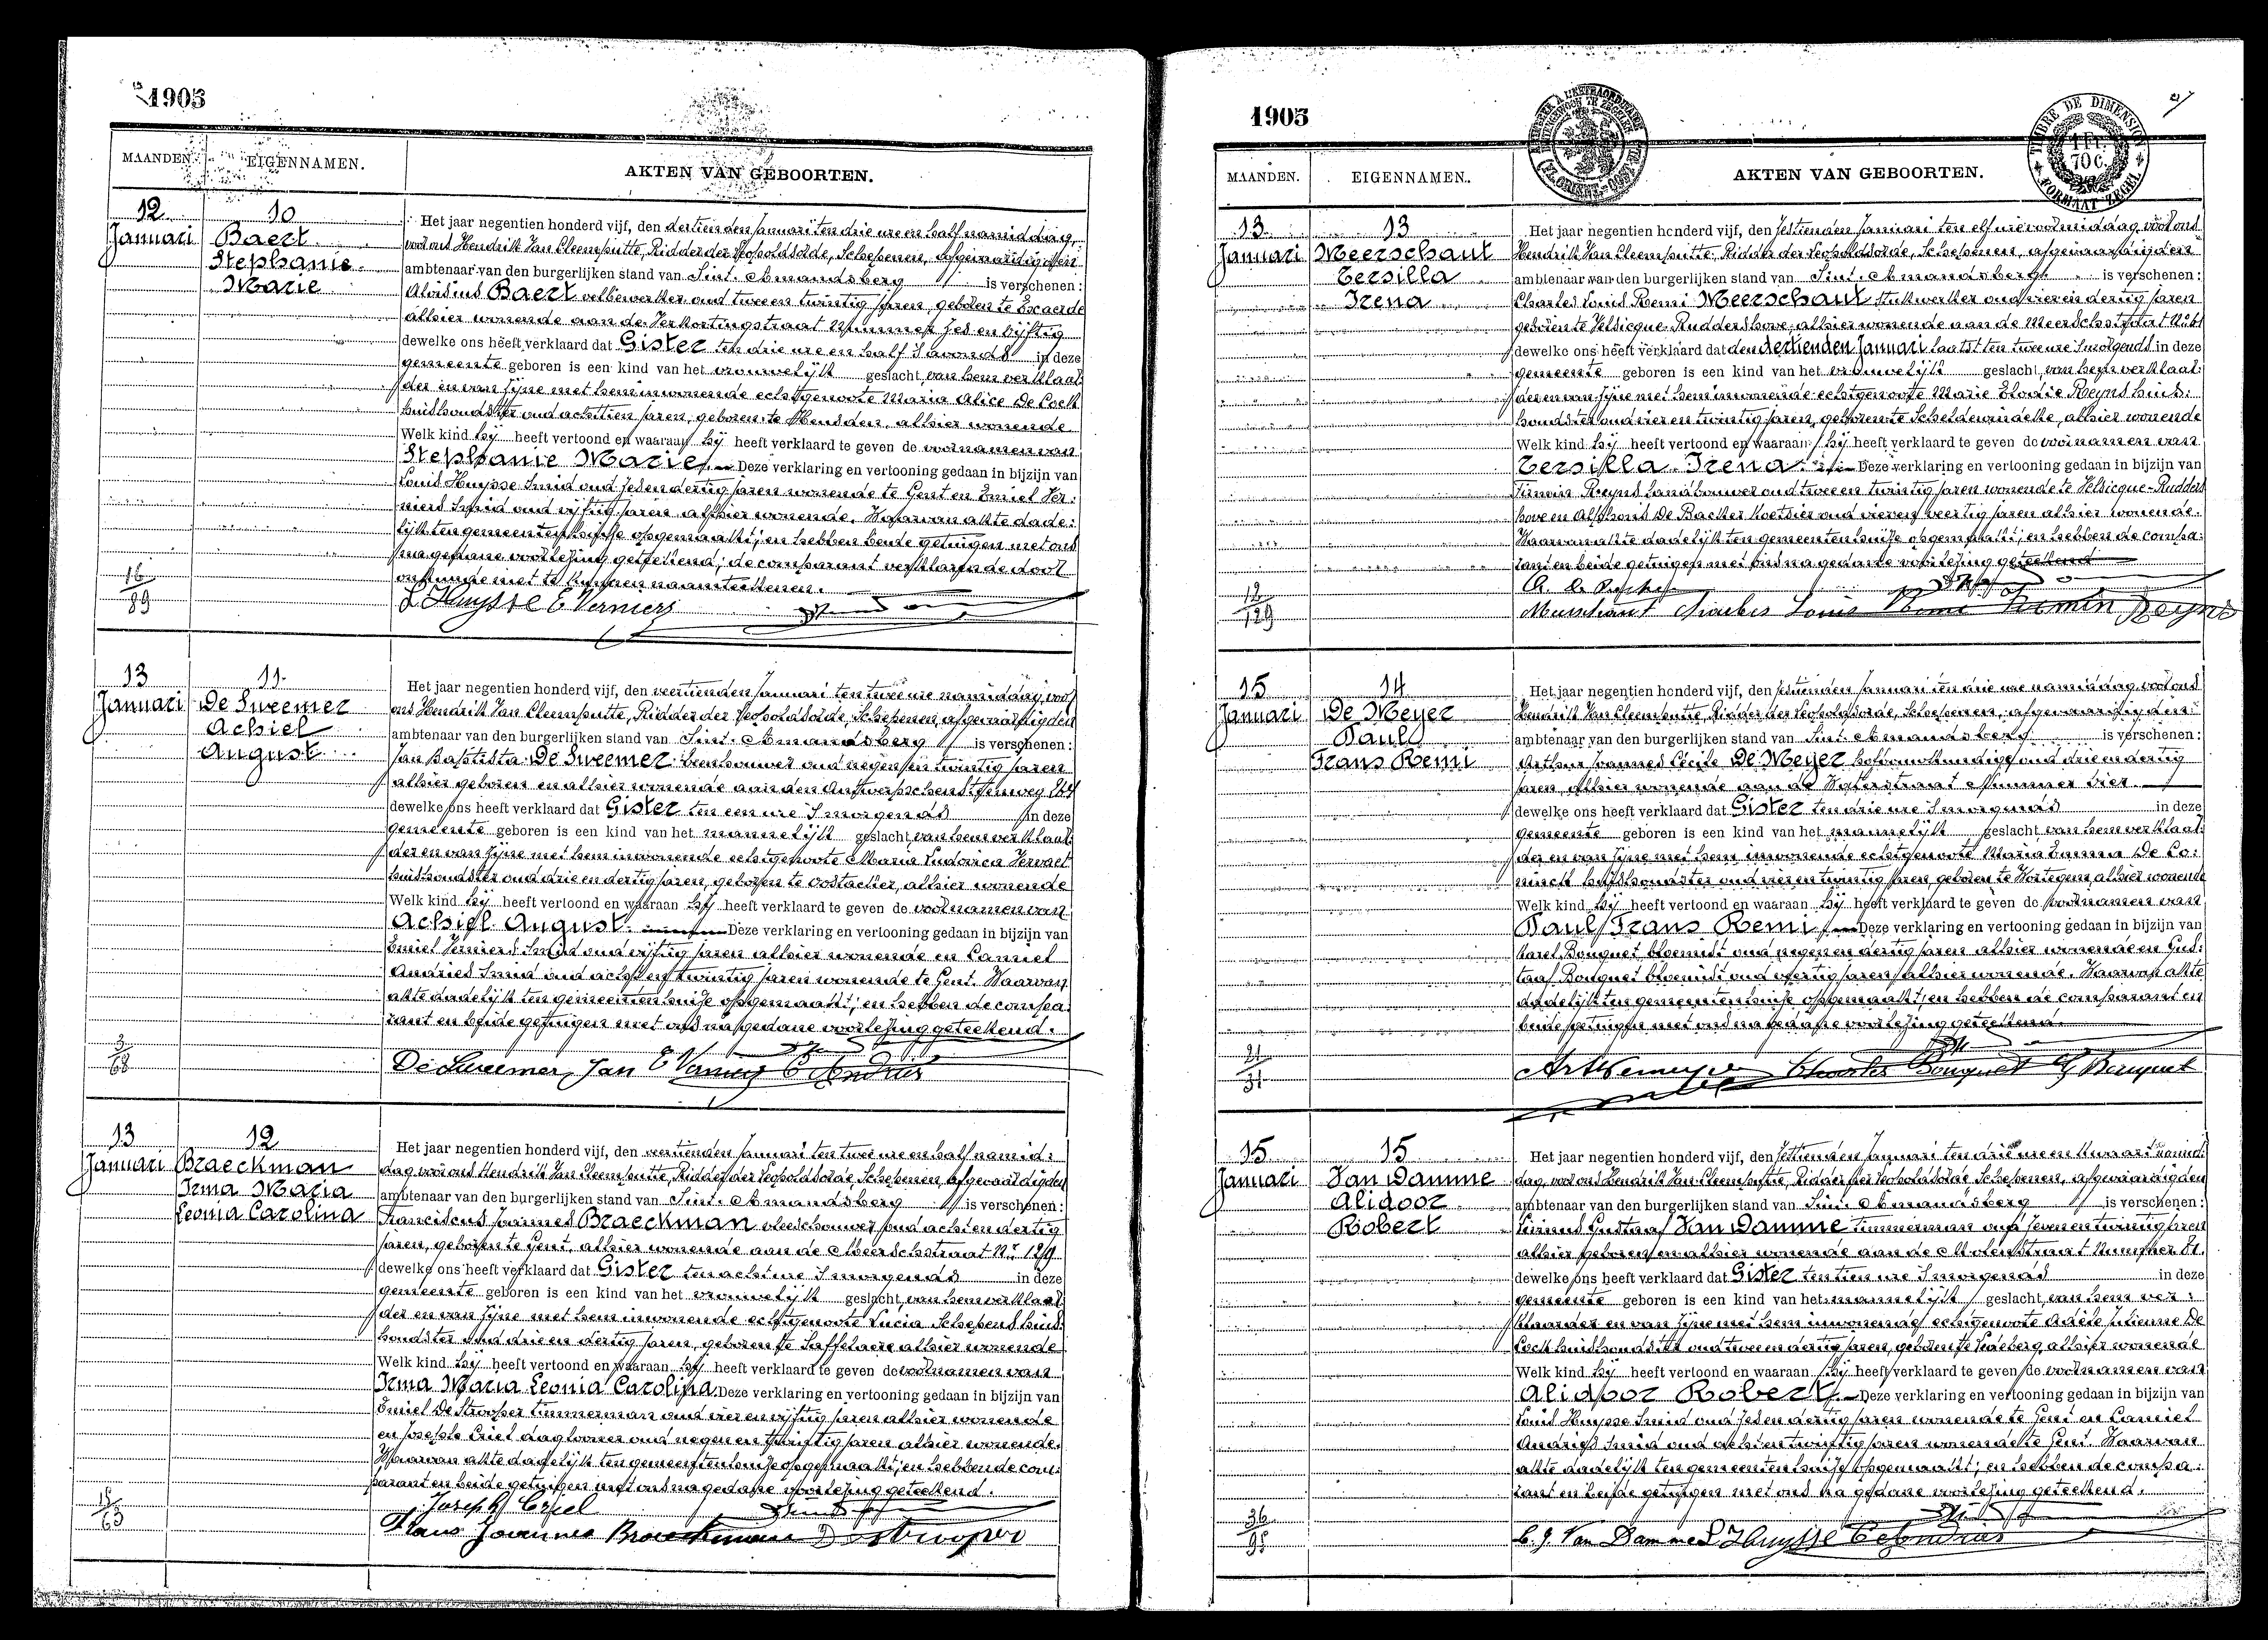 1905
MAANDEN. EIGENNAMEN. AKTEN VAN GEBOORTEN.
12 10
Januari Baert
Stephanie
Marie
Het jaar negentien honderd vijf, den dertienden Januari ten drie ure en half namiddag,
voor ons Hendrik Van Cleemputte, Ridder der Leopoldsorde, Schepenen, afgevaardigden
ambtenaar van den burgerlijken stand van Sint-Amandsberg is verschenen:
Aloïsius Baert velbewerker oud twee en twintig jaren, geboren te Evaerde
alhier wonende aan de Verkortingstraat Nummer Zes en vijftig
dewelke ons heeft verklaard dat Gister ten drie ure en half 's avonds in deze
gemeente geboren is een kind van het vrouwelijk geslacht, van hem verklaar-
der en van zijne met hem inwonende echtgenoote Maria Alice De Cock
huishoudster oud achttien jaren, geboren te Heusden, alhier wonende
Welk kind hij heeft vertoond en waaraan hij heeft verklaard te geven de voornamen van
Stephanie Marie. Deze verklaring en vertooning gedaan in bijzijn van
Louis Huysse Smid oud zes en dertig jaren wonende te Gent en Emiel Ver-
niers Smid oud vijftig jaren alhier wonende. Waarvan akte dade-
lijk ten gemeentenhuize opgemaakt; en hebben beide getuigen met ons
na gedane voorlezing geteekend; de comparant verklarende door
onkunde niet te kunnen naamteekenen.
16/89
L Huysse E Verniers
13 11
Januari De Sweemer
Achiel
August
Het jaar negentien honderd vijf, den veertienden Januari ten twee ure namiddag, voor
ons Hendrik Van Cleemputte, Ridder der Leopoldsorde, Schepenen, afgevaardigden
ambtenaar van den burgerlijken stand van Sint-Amandsberg is verschenen:
Jan Baptista De Sweemer beenhouwer oud negen en twintig jaren
alhier geboren en alhier wonende aan den Antwerpschensteenweg 264
dewelke ons heeft verklaard dat Gister ten een ure 's morgends in deze
gemeente geboren is een kind van het mannelijk geslacht, van hem verklaar-
der en van zijne met hem inwonende echtgenoote Maria Ludovica Vervaet
huishoudster oud drie en dertig jaren, geboren te Oostacker, alhier wonende
Welk kind hij heeft vertoond en waaraan hij heeft verklaard te geven de voornamen van
Achiel August. Deze verklaring en vertooning gedaan in bijzijn van
Emiel Verniers Smid oud vijftig jaren alhier wonende en Camiel
Andries Smid oud acht en twintig jaren wonende te Gent. Waarvan
akte dadelijk ten gemeentenhuize opgemaakt; en hebben de compa-
rant en beide getuigen met ons na gedane voorlezing geteekend.
3/68
De Sweemer Jan E Verniers C Andries
13 12
Januari Braeckman
Irma Maria
Leonia Carolina
Het jaar negentien honderd vijf, den veertienden Januari ten twee ure en half namid-
dag voor ons Hendrik Van Cleemputte, Ridder der Leopoldsorde, Schepenen, afgevaardigden
ambtenaar van den burgerlijken stand van Sint-Amandsberg is verschenen:
Franciscus Joannes Braeckman vleeschouwer oud acht en dertig
jaren, geboren te Gent, alhier wonende aan de Meerschstraat Nr 129
dewelke ons heeft verklaard dat Gister ten acht ure 's morgends in deze
gemeente geboren is een kind van het vrouwelijk geslacht, van hem verklaar-
der en van zijne met hem inwonende echtgenoote Lucia Schepens huis-
houdster oud drie en dertig jaren, geboren te Saffelaere alhier wonende
Welk kind hij heeft vertoond en waaraan hij heeft verklaard te geven de voornamen van
Irma Maria Leonia Carolina. Deze verklaring en vertooning gedaan in bijzijn van
Emiel De Strooper timmerman oud vier en vijftig jaren alhier wonende
en Joseph Criel daglooner oud negen en twintig jaren alhier wonende.
Waarvan akte dadelijk ten gemeentenhuize opgemaakt; en hebben de com-
parant en beide getuigen met ons na gedane voorlezing geteekend.
Joseph Criel
18/63
Frans Joannes Braeckman Destrooper
1905
MAANDEN. EIGENNAMEN. AKTEN VAN GEBOORTEN.
TIMBRE DE DIMENSION
1 Fr. 70 c.
FORMAAT ZEGEL
13 13
Januari Meerschaut
Zersilla
Irena
Het jaar negentien honderd vijf, den zestienden Januari ten elf ure voormiddag voor ons
Hendrik Van Cleemputte, Ridder der Leopoldsorde, Schepenen, afgevaardigden
ambtenaar van den burgerlijken stand van Sint-Amandsberg is verschenen:
Charles Louis Remi Meerschaut stukwerker oud vier en dertig jaren
geboren te Velsicque-Ruddershove, alhier wonende aan de Meerschstraat
dewelke ons heeft verklaard dat den dertienden Januari laatst ten twee ure 's morgends in deze
gemeente geboren is een kind van het vrouwelijk geslacht, van hem verklaar-
der en van zijne met hem inwonende echtgenoote Marie Elodie Reyns huis-
houdster oud vier en twintig jaren, geboren te Scheldewindeke, alhier wonende
Welk kind hij heeft vertoond en waaraan hij heeft verklaard te geven de voornamen van
Zersilla Irena. Deze verklaring en vertooning gedaan in bijzijn van
Firmin Reyns Landbouwer oud twee en twintig jaren wonende te Velsicque-Rudders
hove en Alphons De Backer Koetsier oud vier en veertig jaren alhier wonende.
Waarvan akte dadelijk ten gemeentenhuize opgemaakt; en hebben de compa-
rant en beide getuigen met ons na gedane voorlezing geteekend
12/129
Meerschaut Charles Louis Remi Firmin Reyns
15 14
Januari De Meyer
Paul
Frans Remi
Het jaar negentien honderd vijf, den zestienden Januari ten drie ure namiddag, voor ons
Hendrik Van Cleemputte, Ridder der Leopoldsorde, Schepenen, afgevaardigden
ambtenaar van den burgerlijken stand van Sint-Amandsberg is verschenen:
Arthur Joannes Cécile De Meyer hofbouwkundige oud drie en dertig
jaren, alhier wonende aan de Waterstraat Nummer vier.
dewelke ons heeft verklaard dat Gister ten drie ure 's morgends in deze
gemeente geboren is een kind van het mannelijk geslacht, van hem verklaar-
der en van zijne met hem inwonende echtgenoote Maria Emma De Co-
ninck huishoudster oud vier en twintig jaren, geboren te Wortegem, alhier wonende
Welk kind hij heeft vertoond en waaraan hij heeft verklaard te geven de voornamen van
Paul Frans Remi. Deze verklaring en vertooning gedaan in bijzijn van
Karel Bouquet bloemist oud negen en dertig jaren alhier wonende en Gus-
taaf Bouquet bloemist oud veertig jaren alhier wonende. Waarvan akte
dadelijk ten gemeentenhuize opgemaakt; en hebben de comparant en
beide getuigen met ons na gedane voorlezing geteekend.
21/31
Charles Bouquet G Bouquet
15 15
Januari Van Damme
Alidoor
Robert
Het jaar negentien honderd vijf, den zestienden Januari ten drie ure en kwaart namid-
dag, voor ons Hendrik Van Cleemputte, Ridder der Leopoldsorde Schepenen, afgevaardigden
ambtenaar van den burgerlijken stand van Sint-Amandsberg is verschenen:
Gustaaf Van Damme timmerman oud zeven en twintig jaren
alhier geboren en alhier wonende aan de Molenstraat Nummer 81.
dewelke ons heeft verklaard dat Gister ten tien ure 's morgends in deze
gemeente geboren is een kind van het mannelijk geslacht, van hem ver-
klaarder en van zijne met hem inwonende echtgenoote Adèle Julienne De
Cock huishoudster oud twee en dertig jaren, geboren te Ledeberg, alhier wonende
Welk kind hij heeft vertoond en waaraan hij heeft verklaard te geven de voornamen van
Alidoor Robert. Deze verklaring en vertooning gedaan in bijzijn van
Louis Huysse Smid oud zes en dertig jaren wonende te Gent en Camiel
Andries Smid oud acht en twintig jaren wonende te Gent. Waarvan
akte dadelijk ten gemeentenhuize opgemaakt; en hebben de compa-
rant en beide getuigen met ons na gedane voorlezing geteekend.
36/95
C. G. Van Damme L Huysse C Andries